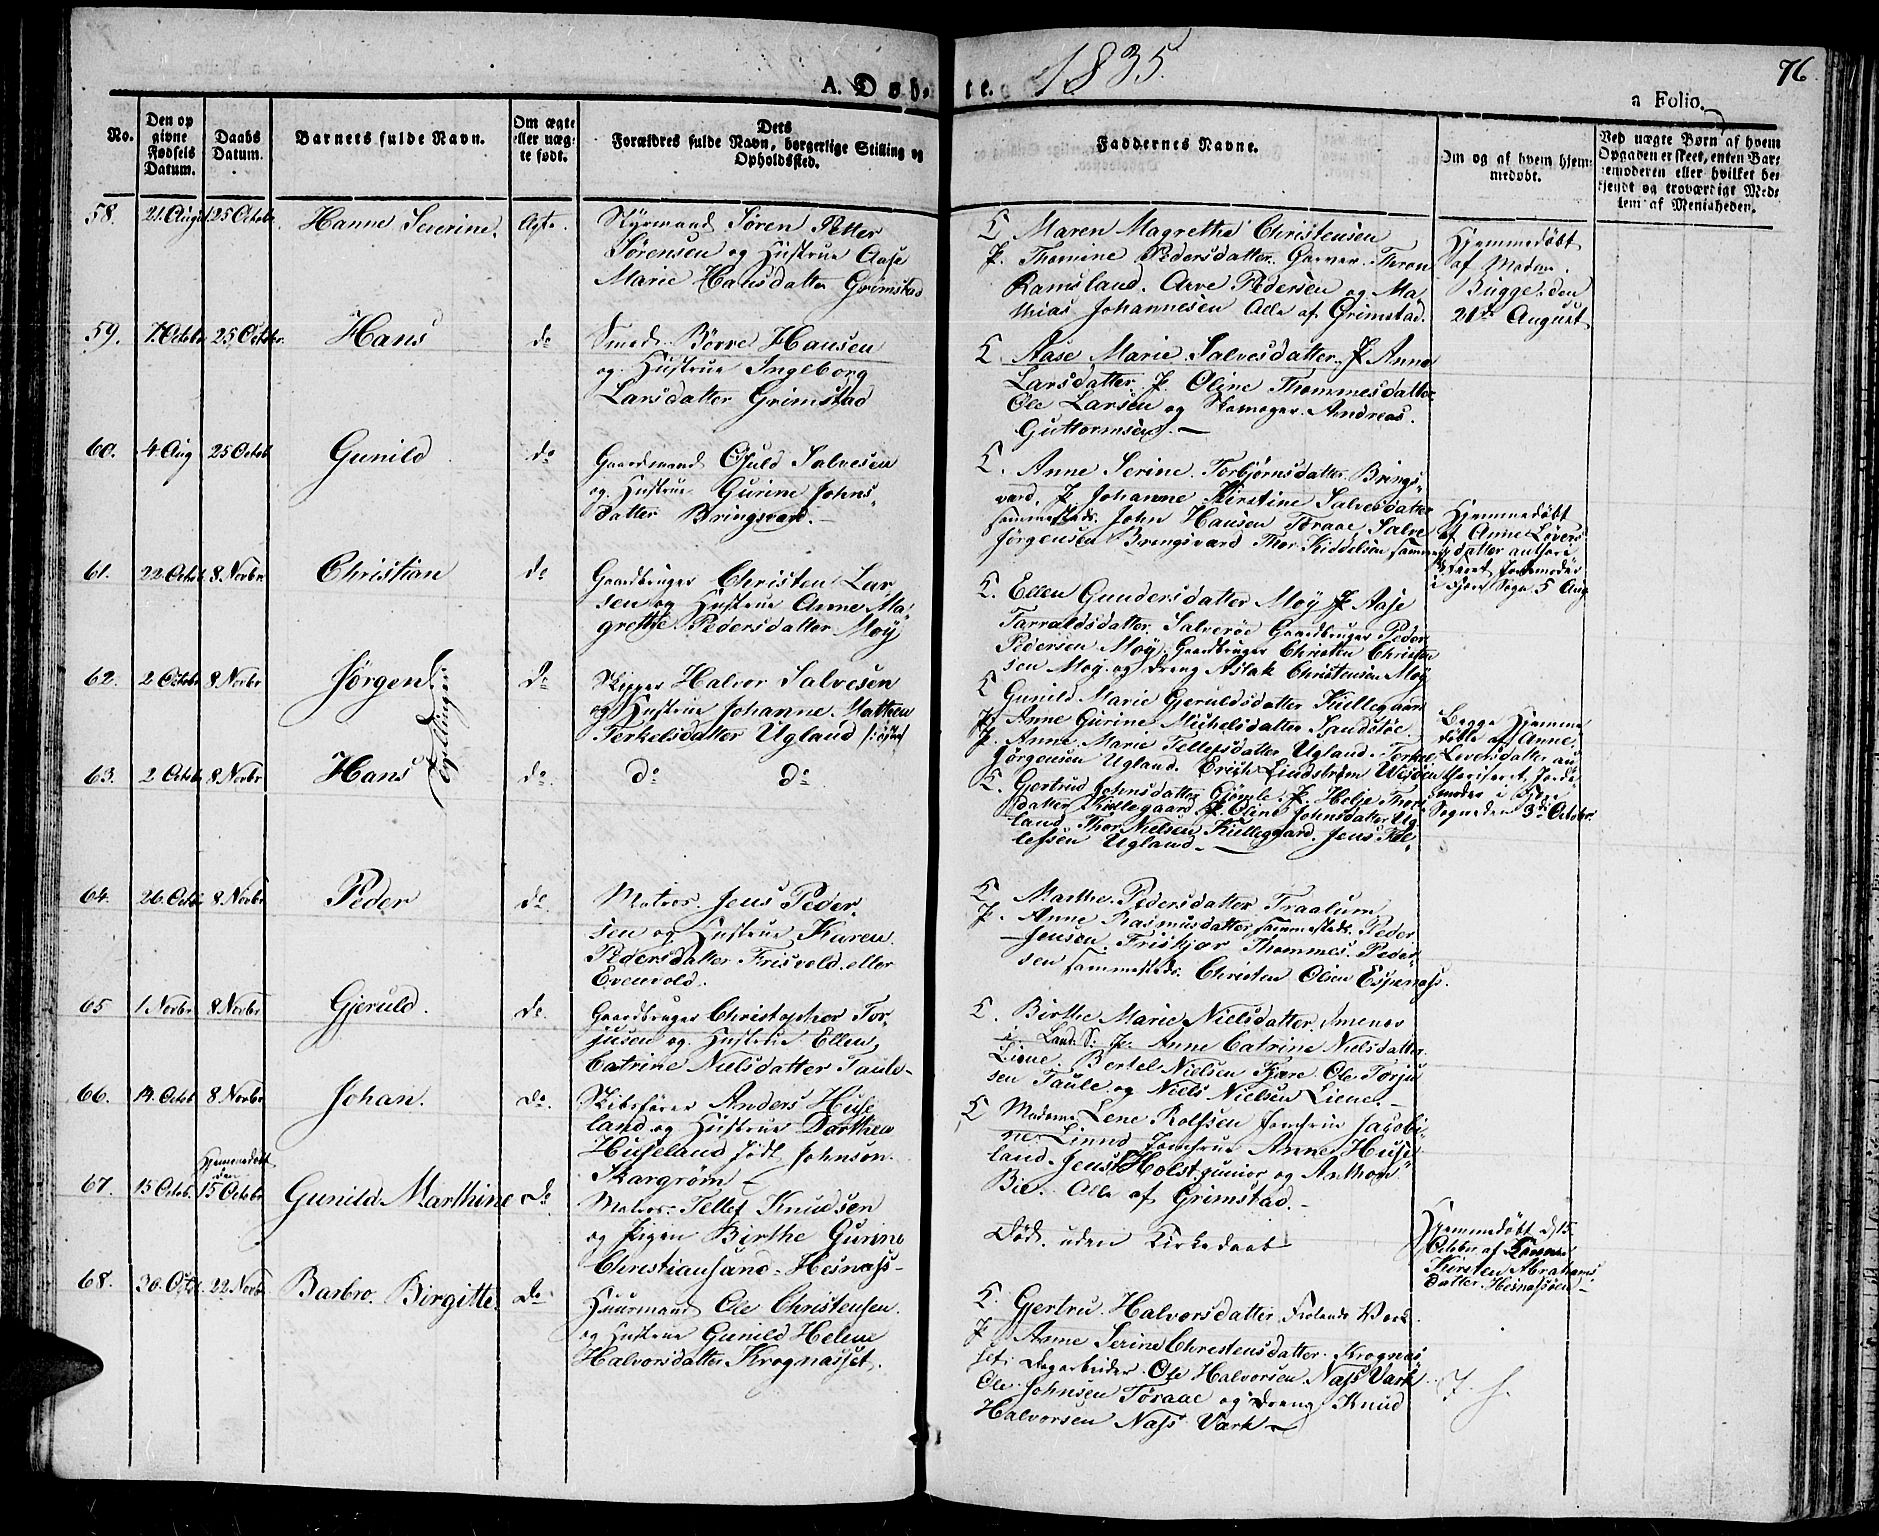 1835.
76.
A. Døb- te.
a Folio.
No.
Den op
givne
Fødsels
Datum.
Daabs
Datum.
Barnets fulde Navn.
Om ægte
eller uæg-
te født.
Dets
Forældres fulde Navn, borgerlige Stilling og
Opholdssted.
Faddernes Navne.
Om og af hvem hjem-
medøbt.
Ved uægte Børn af hvem
Opgaven er skeet, enten Bar-
nemoderen eller hvilket be-
kjendt og troværdigt Med-
lem af Menigheden.
58. 21 August 25 Octobr Hanne Severine. Ægte.
Styrmand Søren Petter
Sørensen og Hustrue Aase
Marie Hansdatter Grimstad
Maren Magrethe Christensen
P. Thomine Pedersdatter. Garver Thron
Ramsland. Arve Pedersen og Ma
thias Johannesen Alle af Grimstad.
Hjemmedøbt
af Madme
Bugge den
21de August
59. 7. Octobr 25 Octobr. Hans do
Smed Børre Hansen
og Hustrue Ingeborg
Larsdatter Grimstad
Aase Marie Salvesdatter. P. Anne
Larsdatter. P. Oline Thommesdatter
Ole Larsen og Skomager Andreas
Guttormsen. —
60. 4 Aug 25 Octob Gunild do
Gaardmand Osuld Salvesen
og Hustrue Gurine Johns-
datter Bringsvard. —
Anne Serine Torbjørnsdatter Brings-
vard. P. Johanne Kirstine Salvesdatter
sammesteds. John Hansen Toraae Salve
Jørgensen Bringsvard Thor Kiddelsen samme
Hjemmedøbt
af Anne Lovers
datter authori
seret Jordemoder
i Fjære Sogn 5 Aug
61. 22 Octob 8 Novbr Christian do
Gaardbruger Christen Lar-
sen og Hustrue Anne Ma-
grethe Pedersdatter Moÿ
Ellen Gundersdatter Moÿ P. Aase
Tarraldsdatter Salverøe Gaardbruger Peder
Pedersen Moÿ. Gaardbruger Christen Christen
sen Moÿ og Dreng Aslak Christensen Moÿ
62. 2 Octobr 8 Novbr Jørgen
Tvillinger
do
Skipper Halvor Salvesen
og Hustrue Johanne Mathea
Terkelsdatter Ugland
Gunild Marie Gjeruldsdatter Kiellegaard
P. Anne Gurine Michelsdatter Sandstøe.
P. Anne Marie Tellefsdatter Ugland. Terkel
Jørgensen Ugland. Erich Lindstrøm
Begge Hjemme
døbte af Anne
Loversdatter au
thoriseret Jorde
moder i Fjære
Sogn den 3de Octobr.
63. 2 Octob 8 Novbr Hans do do do
Gjertrud Johnsdatter Gjømle. P. Helje Thors
datter Kiellegaard P. Oline Johnsdatter Ug
land. Thor Nielsen Kiellegaard. Jens Tel-
lefsen Ugland. —
64. 26 Octb. 8 Novbr Peder do
Matros Jens Peder-
sen og Hustrue Karen
Pedersdatter Frisvold eller
Evenvold.
Marthe Pedersdatter Traalum
P. Anne Rasmusdatter sammesteds. Peder
Jensen Friskjær Thommes Peder-
sen sammesteds. Christen Olsen Espenæss.
65 1 Novbr 8 Novbr Gjeruld. do
Gaardbruger Christopher Tor-
jusen og Hustrue Ellen
Catrine Nielsdatter Taule-
Birthe Marie Nielsdatter
Land. S. P. Anne Catrine Nielsdatter
Liene. Bertel Nielsen Fjære Ole Torju
sen Taule og Niels Nielsen Liene. —
66. 14 Octob 8 Novbr Johan. do
Skibsfører Anders Huse
land og Hustrue Dorthea
Huseland født Johnson
Skargrøm —
Madme Lene Rolfsen Jomfrue Jacobi-
ne Linnd Jomfrue Anne Huse
land Jens Holst junior og Anthon
Bie. Alle af Grimstad. —
67. 15 Octob.
Hjemmedøbt
den
15 Octobr Gunild Marthine do
Matros Tellef Knudsen
og Pigen Birthe Gurine
Christiansand. Hesnæss-
Død uden Kirkedaab
Hjemmedøbt d. 15
Octobr af
Kirsten Abrahams
datter. Hesnæssøen —
68. 30 Octb 22 Novbr Barbro Birgitte. do
Huusmand Ole Christensen
og Hustrue Gunild Helene
Halvorsdatter Krognæsset.
Gjertru Halvorsdatter Frolands Værk
P. Anne Serine Christensdatter Krognæs
set. Dagarbeider Ole Halvorsen Næss Værk
Ole Johnsen Toraae og Dreng Knud
Halvorsen Næss Værk —